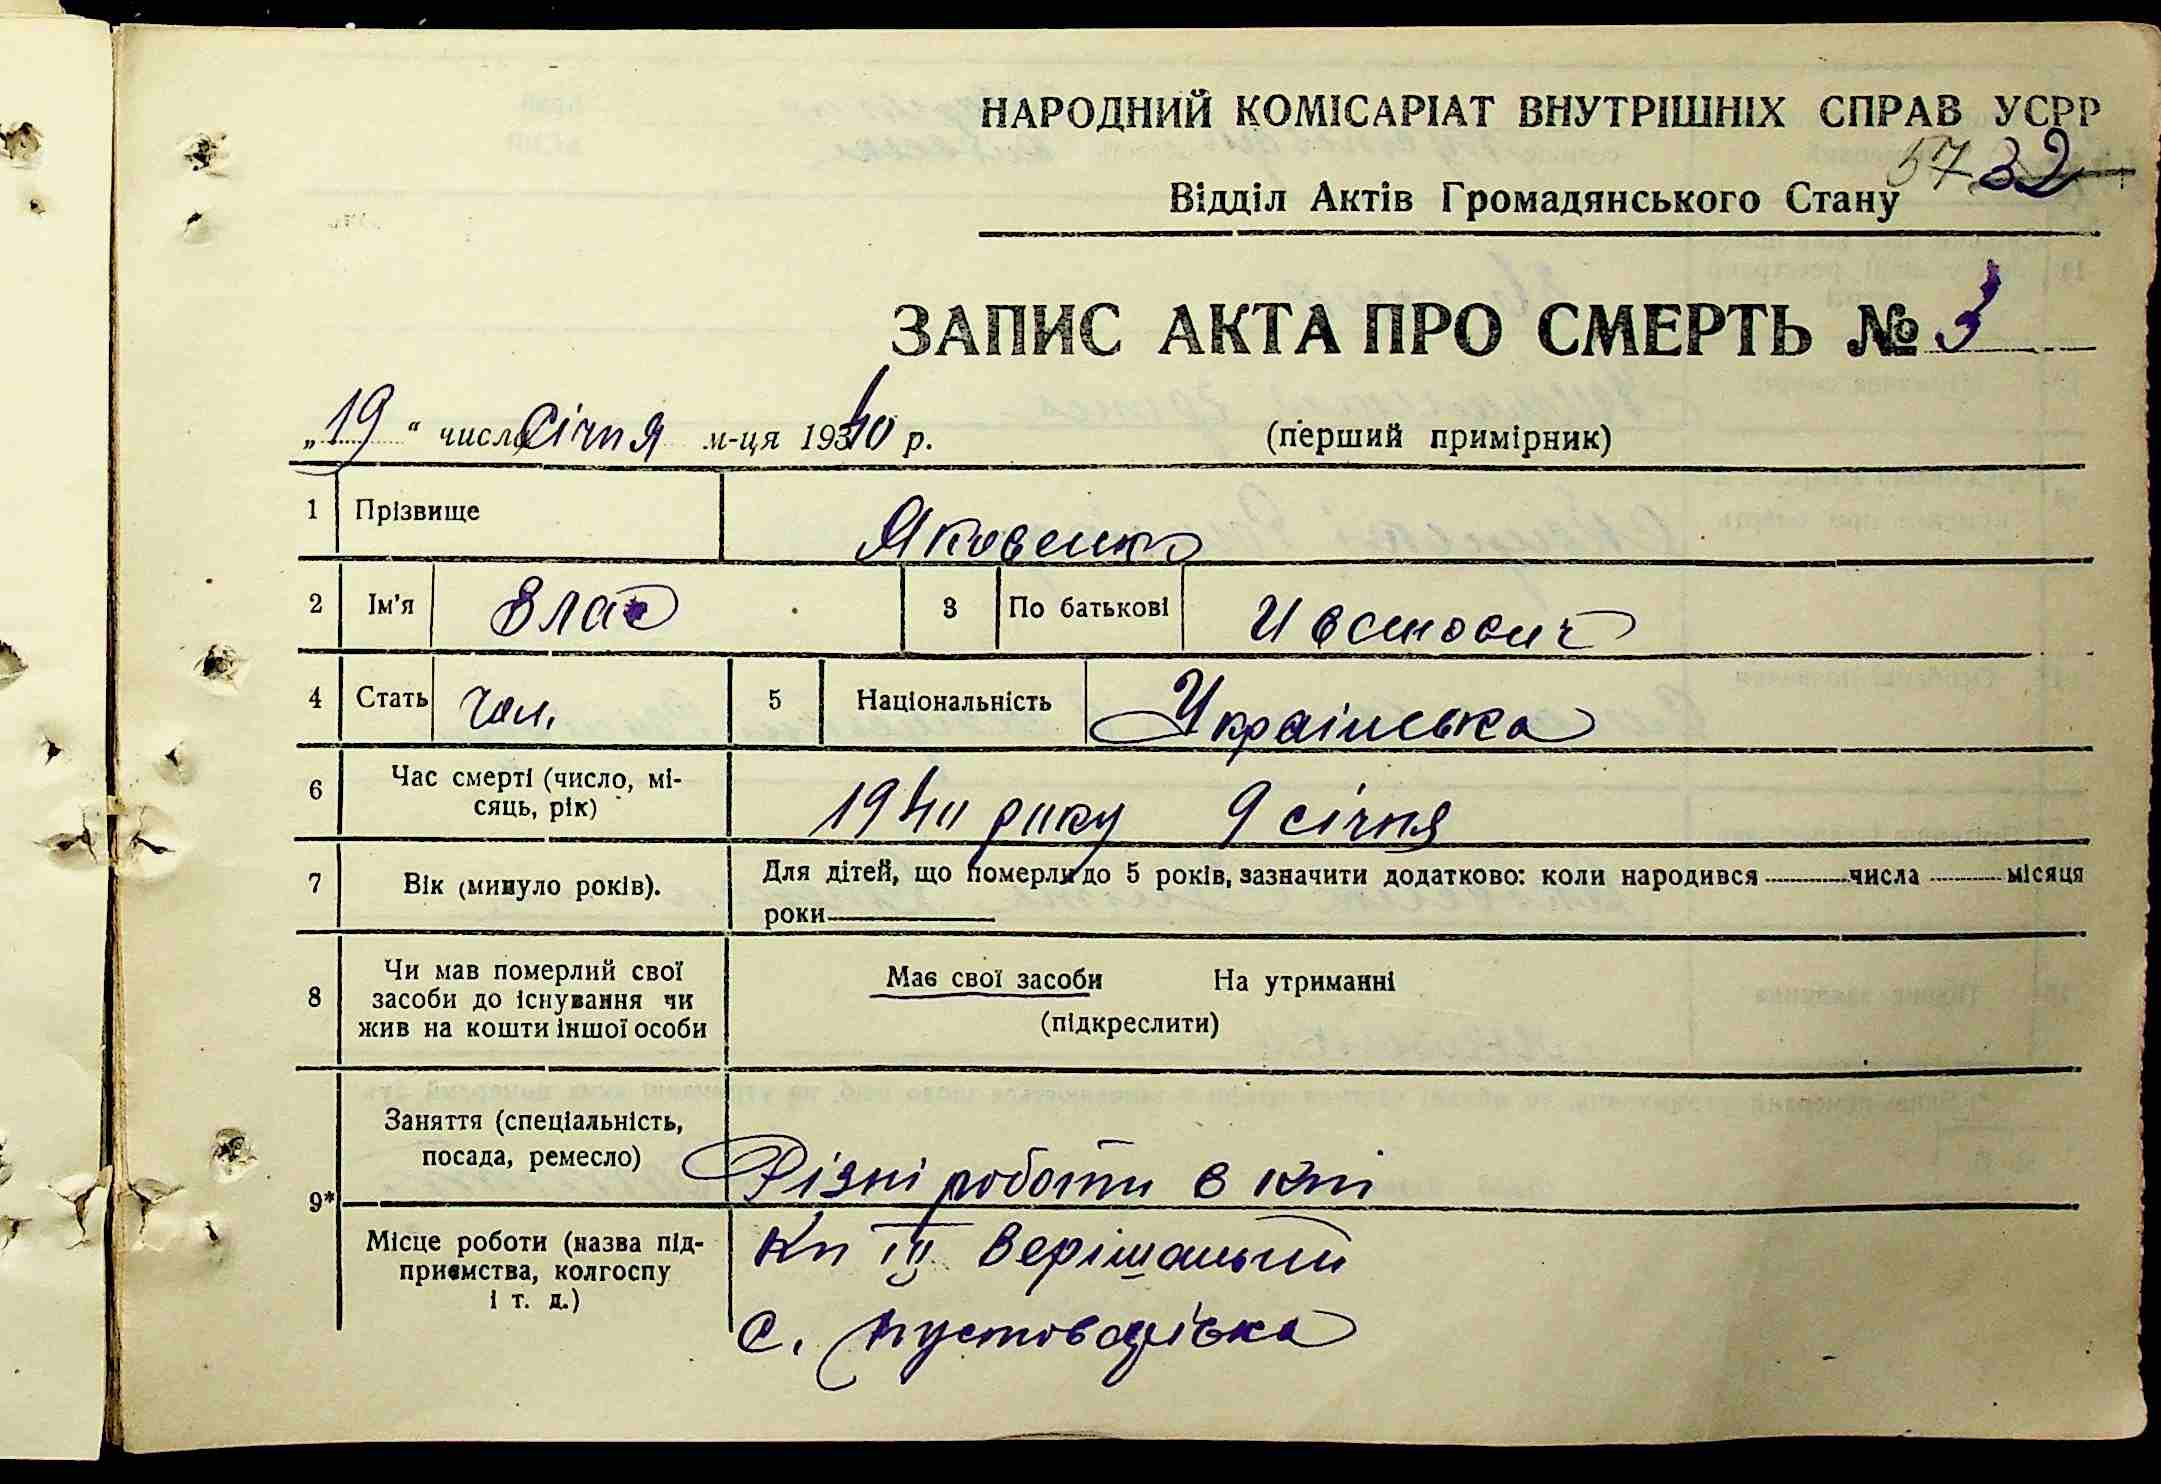 НАРОДНИЙ КОМІСАРІАТ ВНУТРІШНІХ СПРАВ УСРР
57 32
Відділ Актів Громадянського Стану
ЗАПИС АКТА ПРО СМЕРТЬ № 3
„19“ числа січня м-ця 1940 р. (перший примірник)
1 Прізвище Яковенко
2 Ім'я Влас 3 По батькові
4 Стать чол. 5 Національність Українська
6 Час смерті (число, мі-
сяць, рік) 1940 року 9 січня
7 Вік (минуло років). Для дітей, що померли до 5 років, зазначити додатково: коли народився числа місяця
роки
8 Чи мав померлий свої
засоби до існування чи
жив на кошти іншої особи
Має свої засоби На утриманні
(підкреслити)
9* Заняття (спеціальність,
посада, ремесло) Різні роботи в
Місце роботи (назва під-
приємства, колгоспу
і т. д.)
Кп ІІІ
с. Пустоварівка